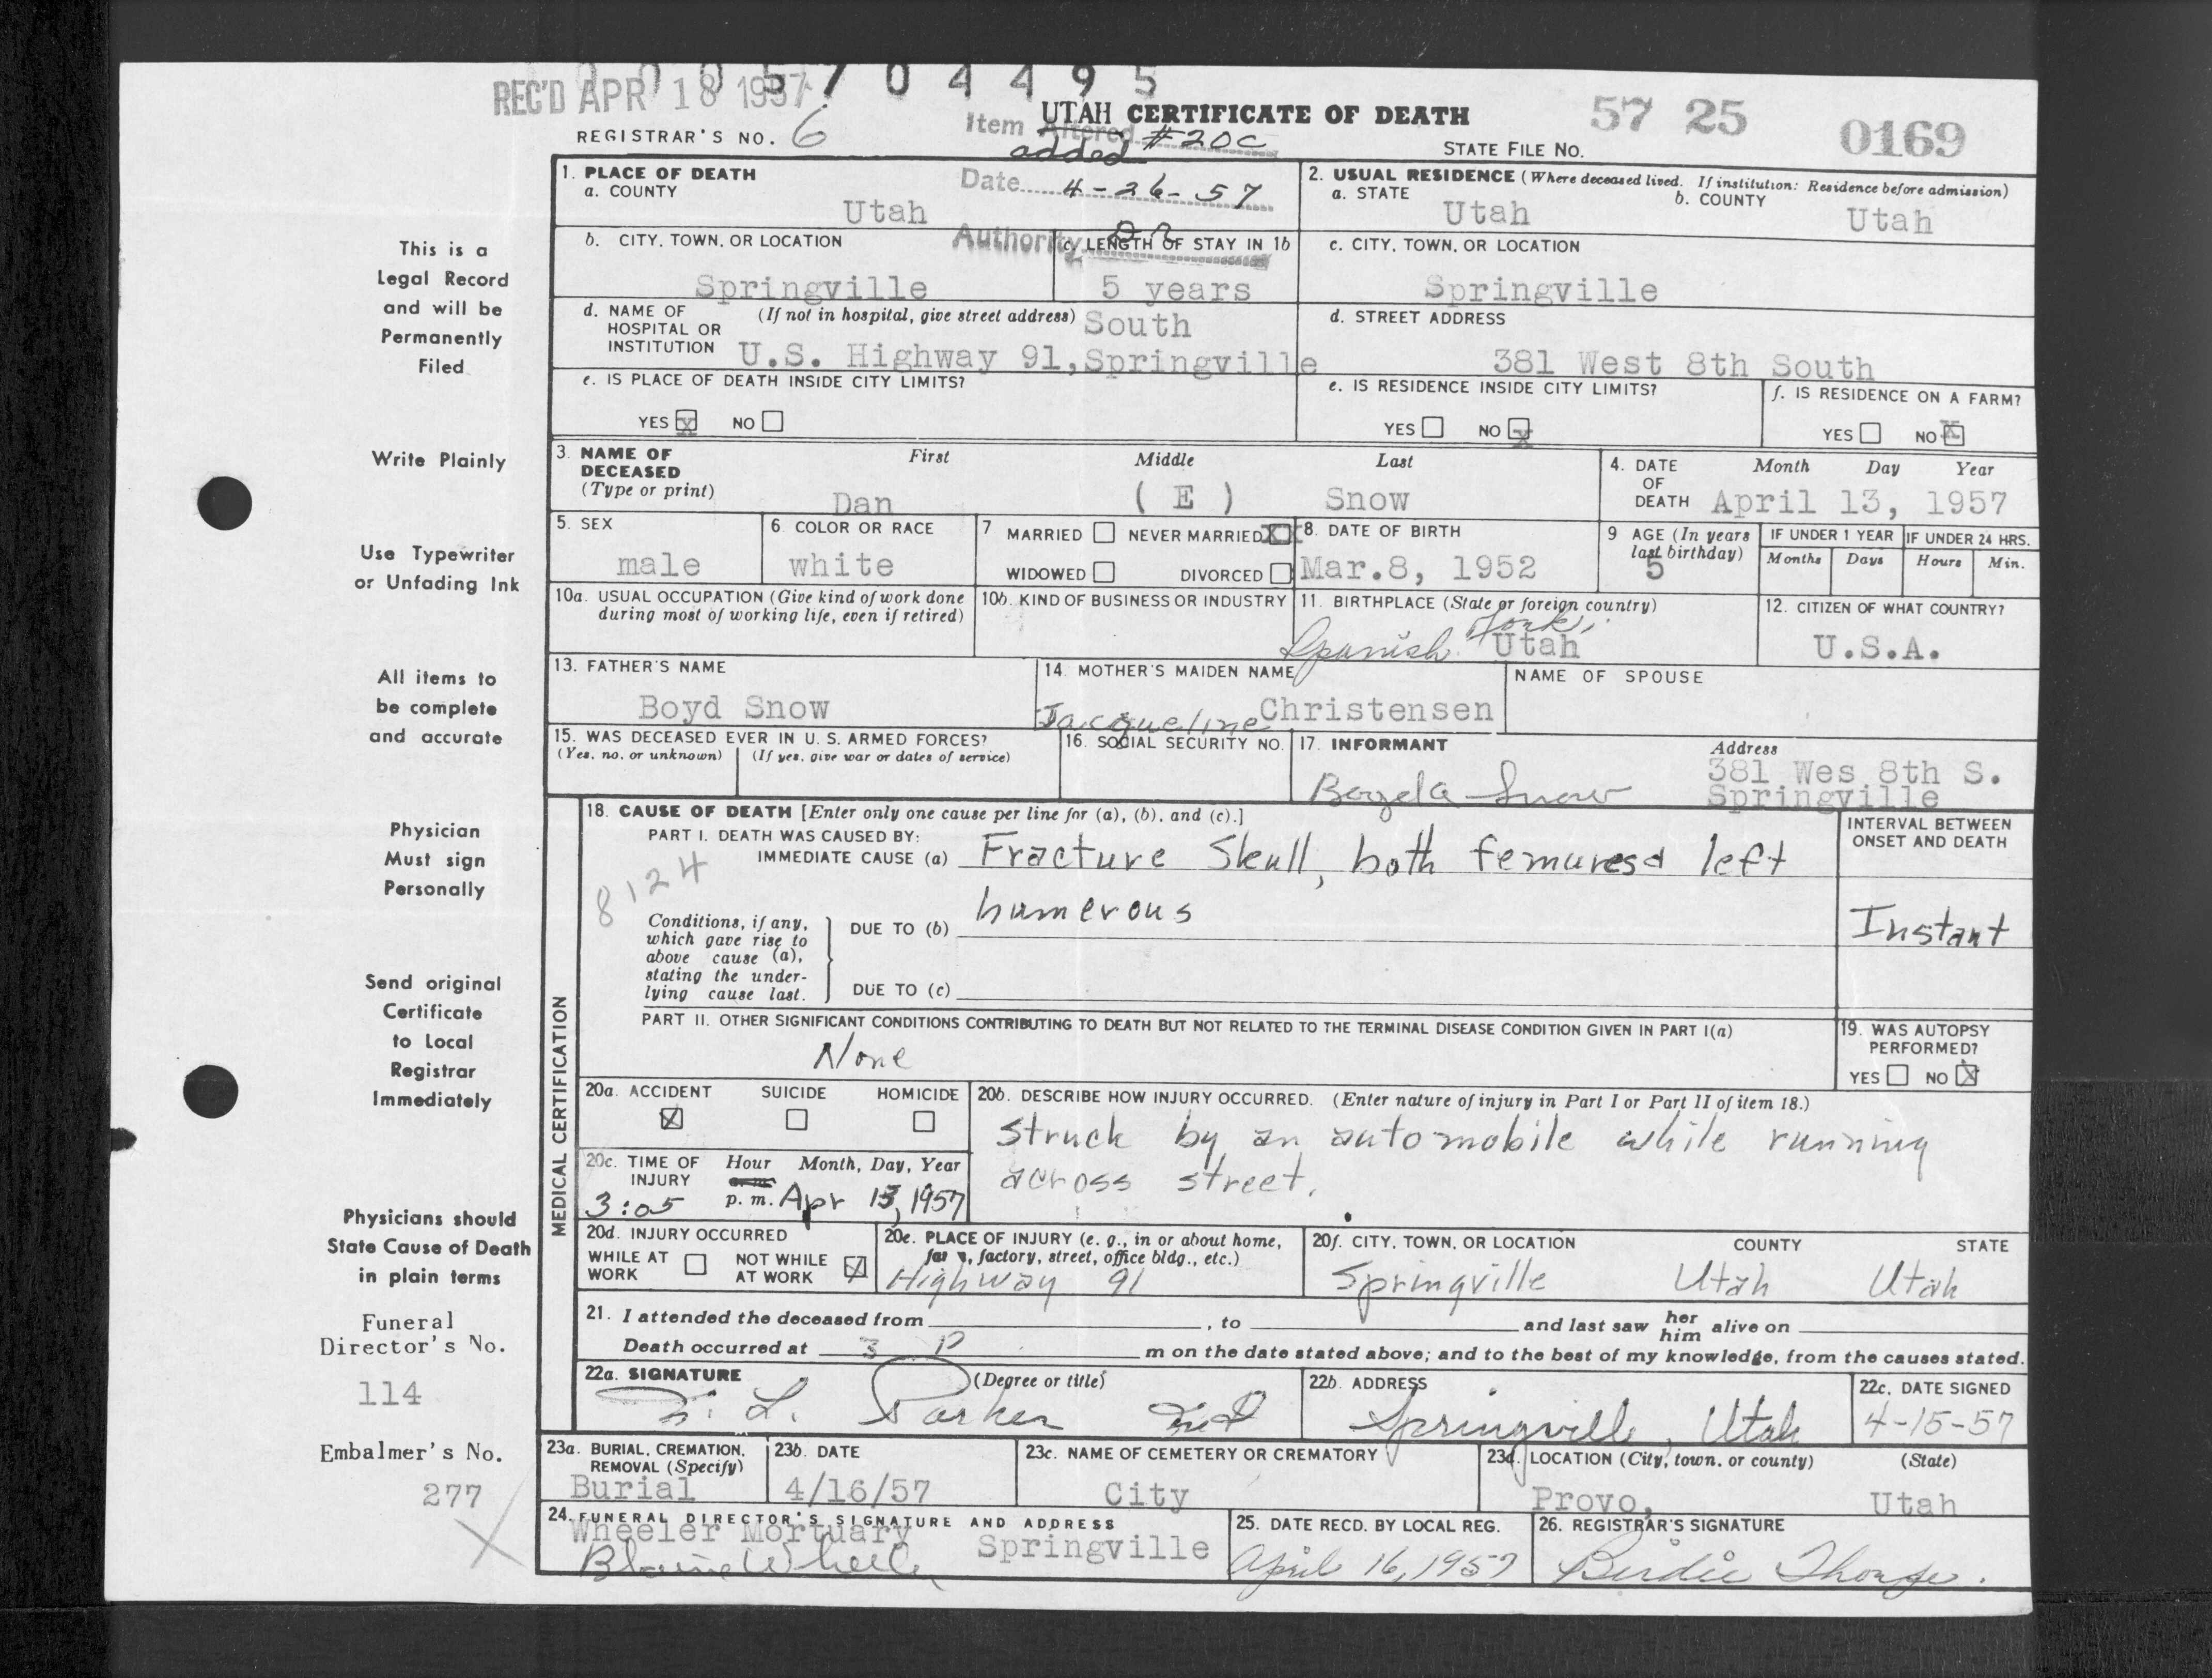 REC'D APR 18 1957
0 0 5 7 0 4 4 9 5
UTAH CERTIFICATE OF DEATH
57 25 0169
REGISTRAR'S NO. 6
Item Altered #20C
added
STATE FILE NO.
Date 4-26-57
Authority DR
1. PLACE OF DEATH
a. COUNTY
Utah
2. USUAL RESIDENCE (Where deceased lived. If institution: Residence before admission)
a. STATE b. COUNTY
Utah Utah
b. CITY, TOWN, OR LOCATION
Springville
c. LENGTH OF STAY IN 1b
5 years
c. CITY, TOWN, OR LOCATION
Springville
d. NAME OF (If not in hospital, give street address)
HOSPITAL OR
INSTITUTION
South
U.S. Highway 91, Springville
d. STREET ADDRESS
381 West 8th South
e. IS PLACE OF DEATH INSIDE CITY LIMITS?
YES X NO
e. IS RESIDENCE INSIDE CITY LIMITS?
YES NO X
f. IS RESIDENCE ON A FARM?
YES NO X
3. NAME OF DECEASED
(Type or print)
First Middle Last
Dan ( E ) Snow
4. DATE OF DEATH
Month Day Year
April 13, 1957
5. SEX
male
6. COLOR OR RACE
white
7 MARRIED NEVER MARRIED X
WIDOWED DIVORCED
8. DATE OF BIRTH
Mar.8, 1952
9 AGE (In years last birthday)
5
IF UNDER 1 YEAR
Months Days
IF UNDER 24 HRS.
Hours Min.
10a. USUAL OCCUPATION (Give kind of work done
during most of working life, even if retired)
10b. KIND OF BUSINESS OR INDUSTRY
11. BIRTHPLACE (State or foreign country)
Spanish Fork, Utah
12. CITIZEN OF WHAT COUNTRY?
U.S.A.
13. FATHER'S NAME
Boyd Snow
14. MOTHER'S MAIDEN NAME
Jacqueline Christensen
NAME OF SPOUSE
15. WAS DECEASED EVER IN U. S. ARMED FORCES?
(Yes, no, or unknown) (If yes, give war or dates of service)
16. SOCIAL SECURITY NO.
17. INFORMANT Address
Snow
381 Wes 8th S.
Springville
18. CAUSE OF DEATH [Enter only one cause per line for (a), (b), and (c).]
PART I. DEATH WAS CAUSED BY:
IMMEDIATE CAUSE (a) Fracture Skull, both femures & left
8124
Conditions, if any,
which gave rise to
above cause (a),
stating the under-
lying cause last.
DUE TO (b) humerous
DUE TO (c)
INTERVAL BETWEEN
ONSET AND DEATH
Instant
PART II. OTHER SIGNIFICANT CONDITIONS CONTRIBUTING TO DEATH BUT NOT RELATED TO THE TERMINAL DISEASE CONDITION GIVEN IN PART I(a)
None
19. WAS AUTOPSY
PERFORMED?
YES NO X
MEDICAL CERTIFICATION
20a. ACCIDENT SUICIDE HOMICIDE
X
20b. DESCRIBE HOW INJURY OCCURRED. (Enter nature of injury in Part I or Part II of item 18.)
Struck by an automobile while running
across street.
20c. TIME OF INJURY
Hour Month, Day, Year
a. m.
3:05 p. m. Apr 13, 1957
20d. INJURY OCCURRED
WHILE AT WORK
NOT WHILE AT WORK X
20e. PLACE OF INJURY (e. g., in or about home,
farm, factory, street, office bldg., etc.)
Highway 91
20f. CITY, TOWN, OR LOCATION COUNTY STATE
Springville Utah Utah
21. I attended the deceased from , to and last saw her him alive on
Death occurred at 3 P m on the date stated above; and to the best of my knowledge, from the causes stated.
22a. SIGNATURE (Degree or title)
L. Parker MD
22b. ADDRESS
Springville, Utah
22c. DATE SIGNED
4-15-57
23a. BURIAL, CREMATION,
REMOVAL (Specify)
Burial
23b. DATE
4/16/57
23c. NAME OF CEMETERY OR CREMATORY
City
23d. LOCATION (City, town, or county) (State)
Provo, Utah
24. FUNERAL DIRECTOR'S SIGNATURE AND ADDRESS
Wheeler Mortuary
Springville
Blaine Wheeler
25. DATE RECD. BY LOCAL REG.
April 16, 1957
26. REGISTRAR'S SIGNATURE
Birdie Thorpe.
This is a
Legal Record
and will be
Permanently
Filed
Write Plainly
Use Typewriter
or Unfading Ink
All items to
be complete
and accurate
Physician
Must sign
Personally
Send original
Certificate
to Local
Registrar
Immediately
Physicians should
State Cause of Death
in plain terms
Funeral
Director's No.
114
Embalmer's No.
277